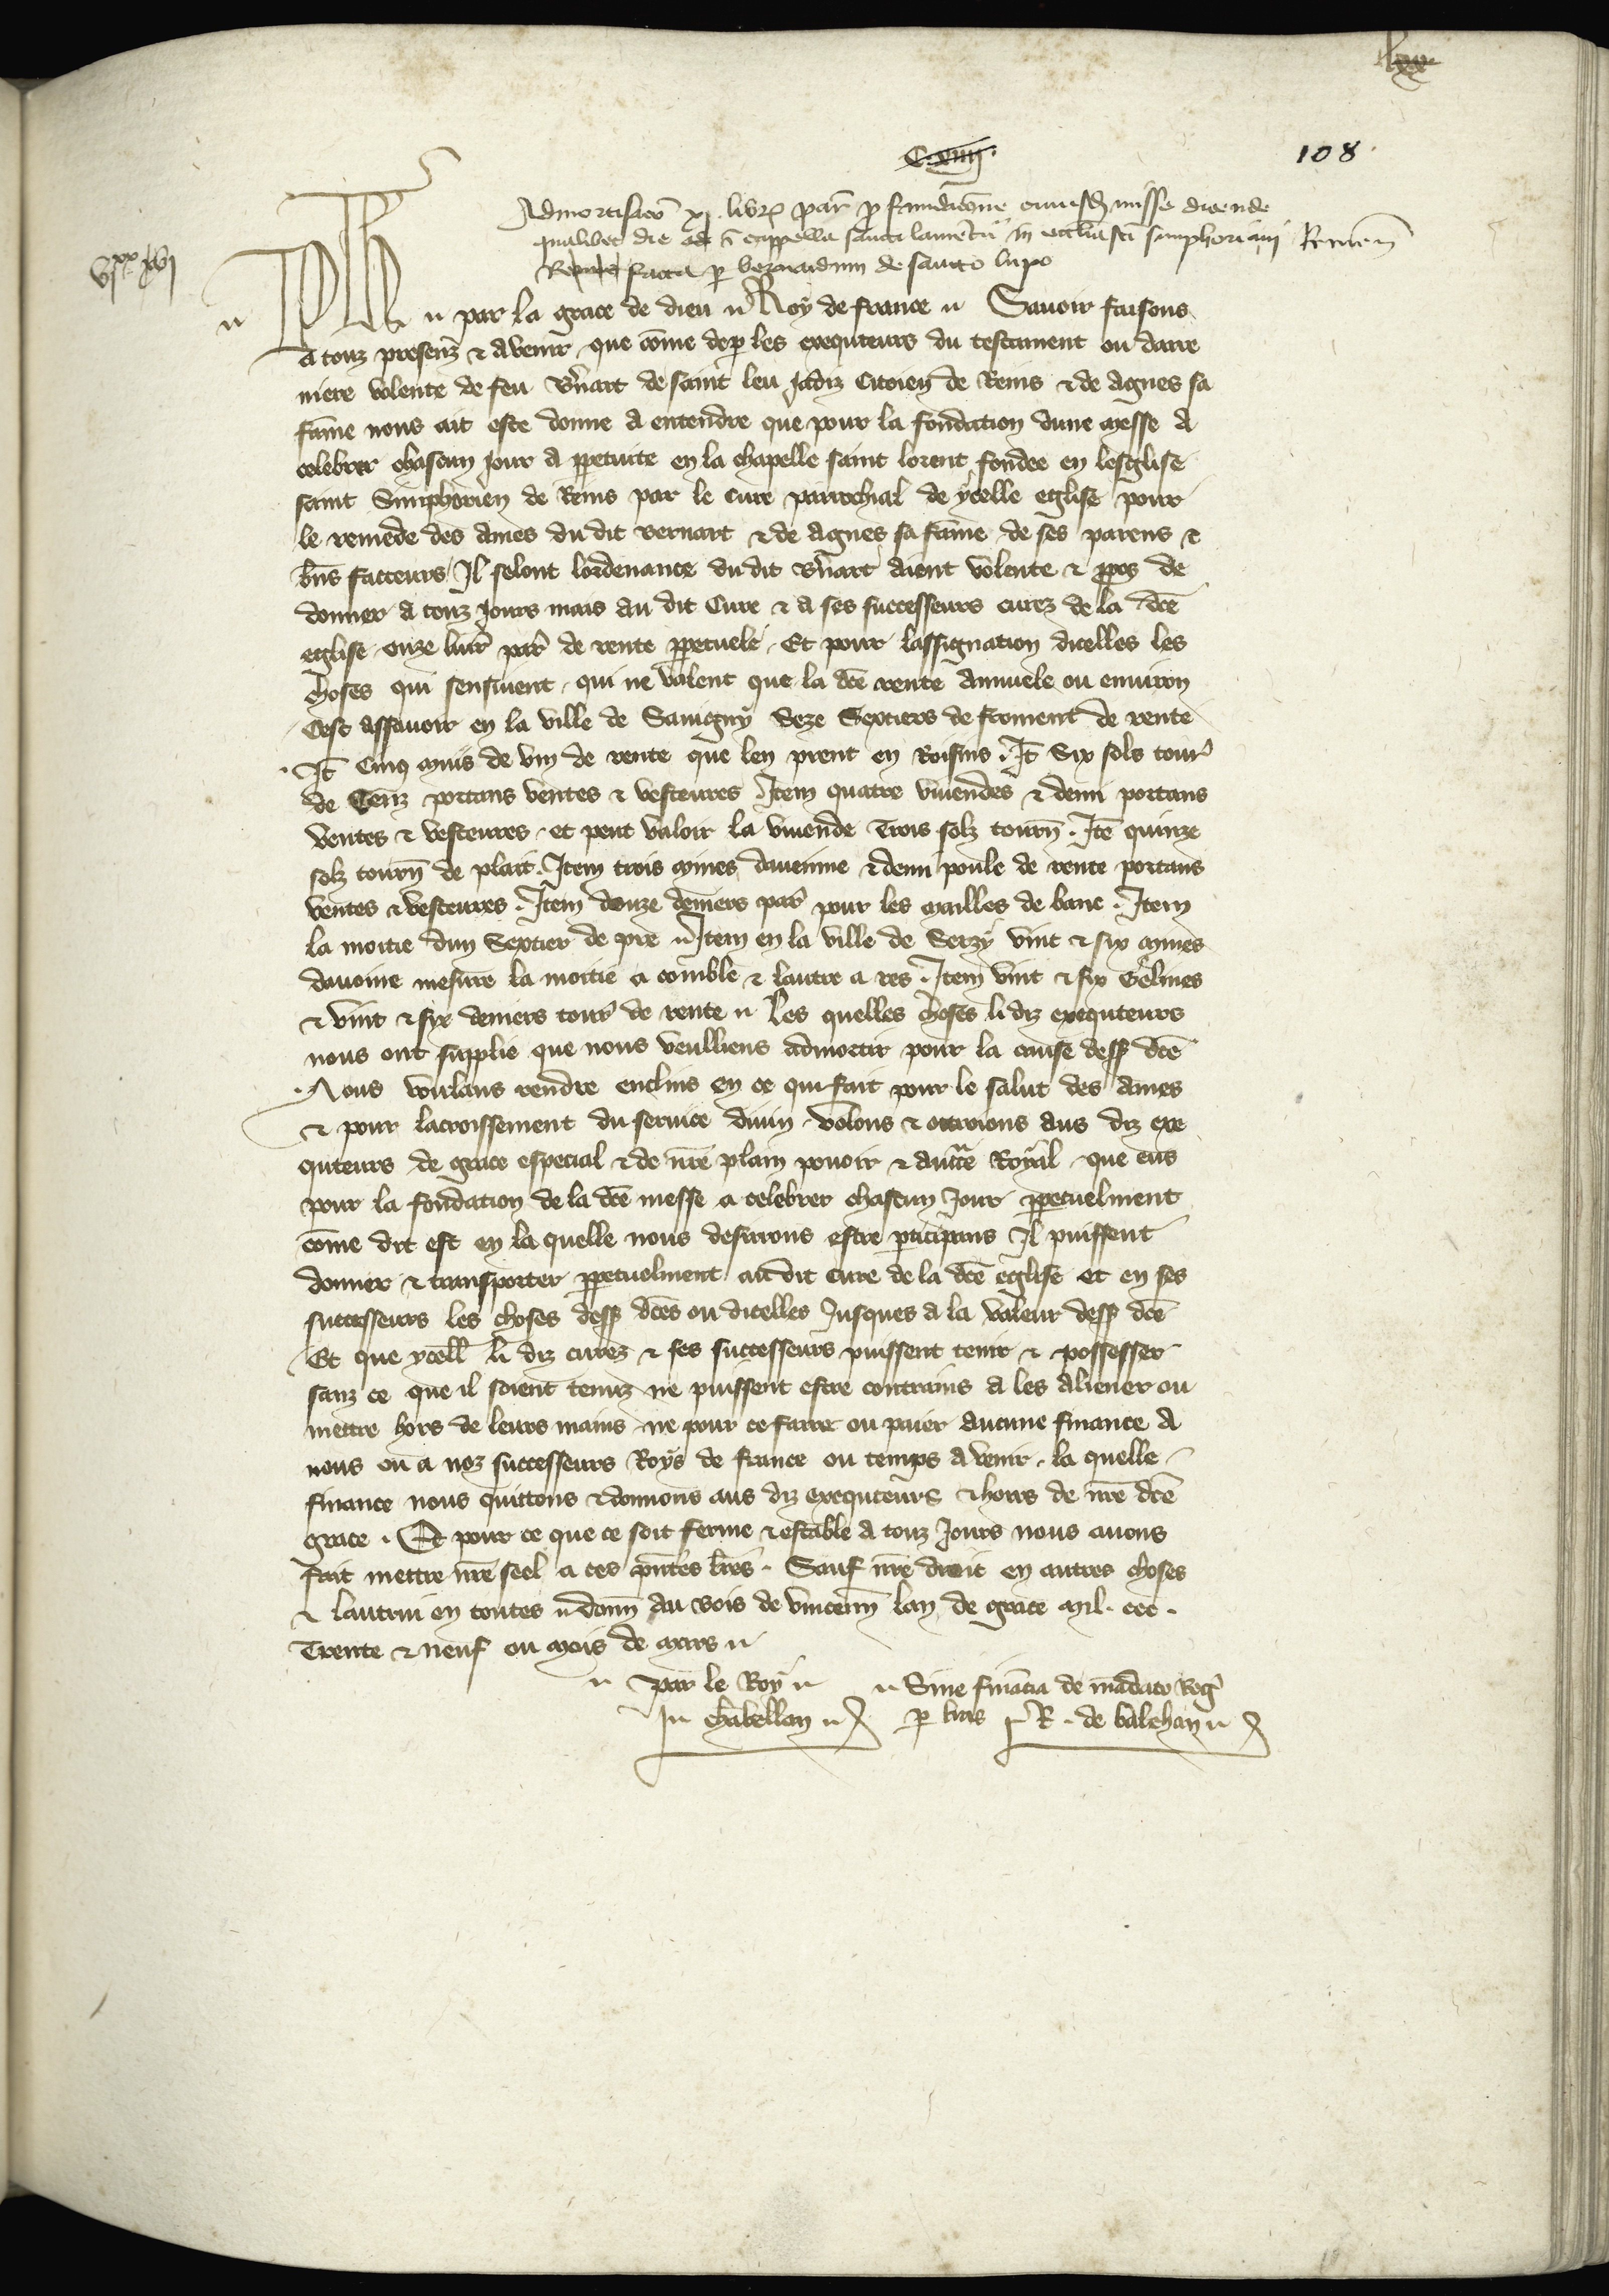 C. xiiii.
108
vi xx xvi
Admortisacio xi. libr. par. pro fundacione cuiusdam misse dicende
qualibet die in cappella sancti laurencii in ecclesia sancti simphoriani Remen
facta per bernardum de sancto lupo
Ph par la grace de dieu Roy de france Savoir faisons
a touz presenz & avenir que cōme de p les exequteurs du testament ou darre
niere volente de feu B'nart de saint leu jadiz Citoien de Reins & de Agnes sa
fāme nous ait este donne a entendre que pour la fondation dune messe a
celebrer chascun jour a ppetuite en la chapelle saint lorent fondee en lesglise
saint Simphorien de Reins par le cure parrochial de ycelle eglise pour
le remede des ames du dit bernart & de Agnes sa fāme de ses parens &
biēs facteurs Il selont lordenance du dit B'nart aient volente & ppos de
donner a touz jours mais au dit Cure & a ses successeurs curez de la dcē
eglise onze livr' par' de rente ppetuele. Et pour lassignation dicelles les
choses qui sensuient, qui ne valent que la dcē rente annuele ou environ
Cest assavoir en la ville de Savigny Seze Sextiers de froment de rente
It Cinq muis de vin de rente que len prent en Roisins. It Six sols tour'
de Cenz portans ventes & vesteures Item quatre vivendes & demi portans
ventes & vesteures. et peut valoir la vivende Trois solz tourn. Itē quinze
solz tourn de plait. Item trois mines davenne & demi poule de rente portans
ventes & vesteures. Item douze deniers par' pour les mailles de banc. Item
la moitie dun Sextier de pre Item en la ville de Serzy vint & six mines
davoine mesure la moitie a comble & lautre a res. Item vint & six Gelines
& vint & six deniers tour' de rente Les quelles choses li diz exequteurs
nous ont supplie que nous veulliens admortir pour la cause dess dcē
Nous voulans rendre enclins en ce qui fait pour le salut des ames
& pour lacroissement du service divin. volons & ottroions aus diz exe
quteurs de grace especial & de nrē plain povoir & auctē Royal, que eus
pour la fondation de la dcē messe a celebrer chascun Jour ppetuelment
cōme dit est en la quelle nous desirons estre pticipans Il puissent
donner & transporter ppetuelment au dit cure de la dcē eglise et en ses
successeurs les choses dess dcēs ou dicelles Jusques a la valeur dess dcē
Et que ycell li diz curez & ses successeurs puissent tenir & possesser
sanz ce que il soient tenuz ne puissent estre contrains a les aliener ou
mettre hors de leurs mains ne pour ce faire ou paier aucune finance a
nous ou a noz successeurs Roys de france ou temps avenir. la quelle
finance nous quittons & donnons aus diz exequteurs & hoirs de nrē dcē
grace. Et pour ce que ce soit ferme & estable a touz Jours nous avons
fait mettre nrē seel a ces pntēs lrēs. Sauf nrē droit en autres choses
& lautrui en toutes donn au bois de vincenn lan de grace mil. ccc.
Trente & neuf ou mois de mars
par le Roy Sine financia de mādato Reg'
Ja. Chabellon p lras R. de balehan